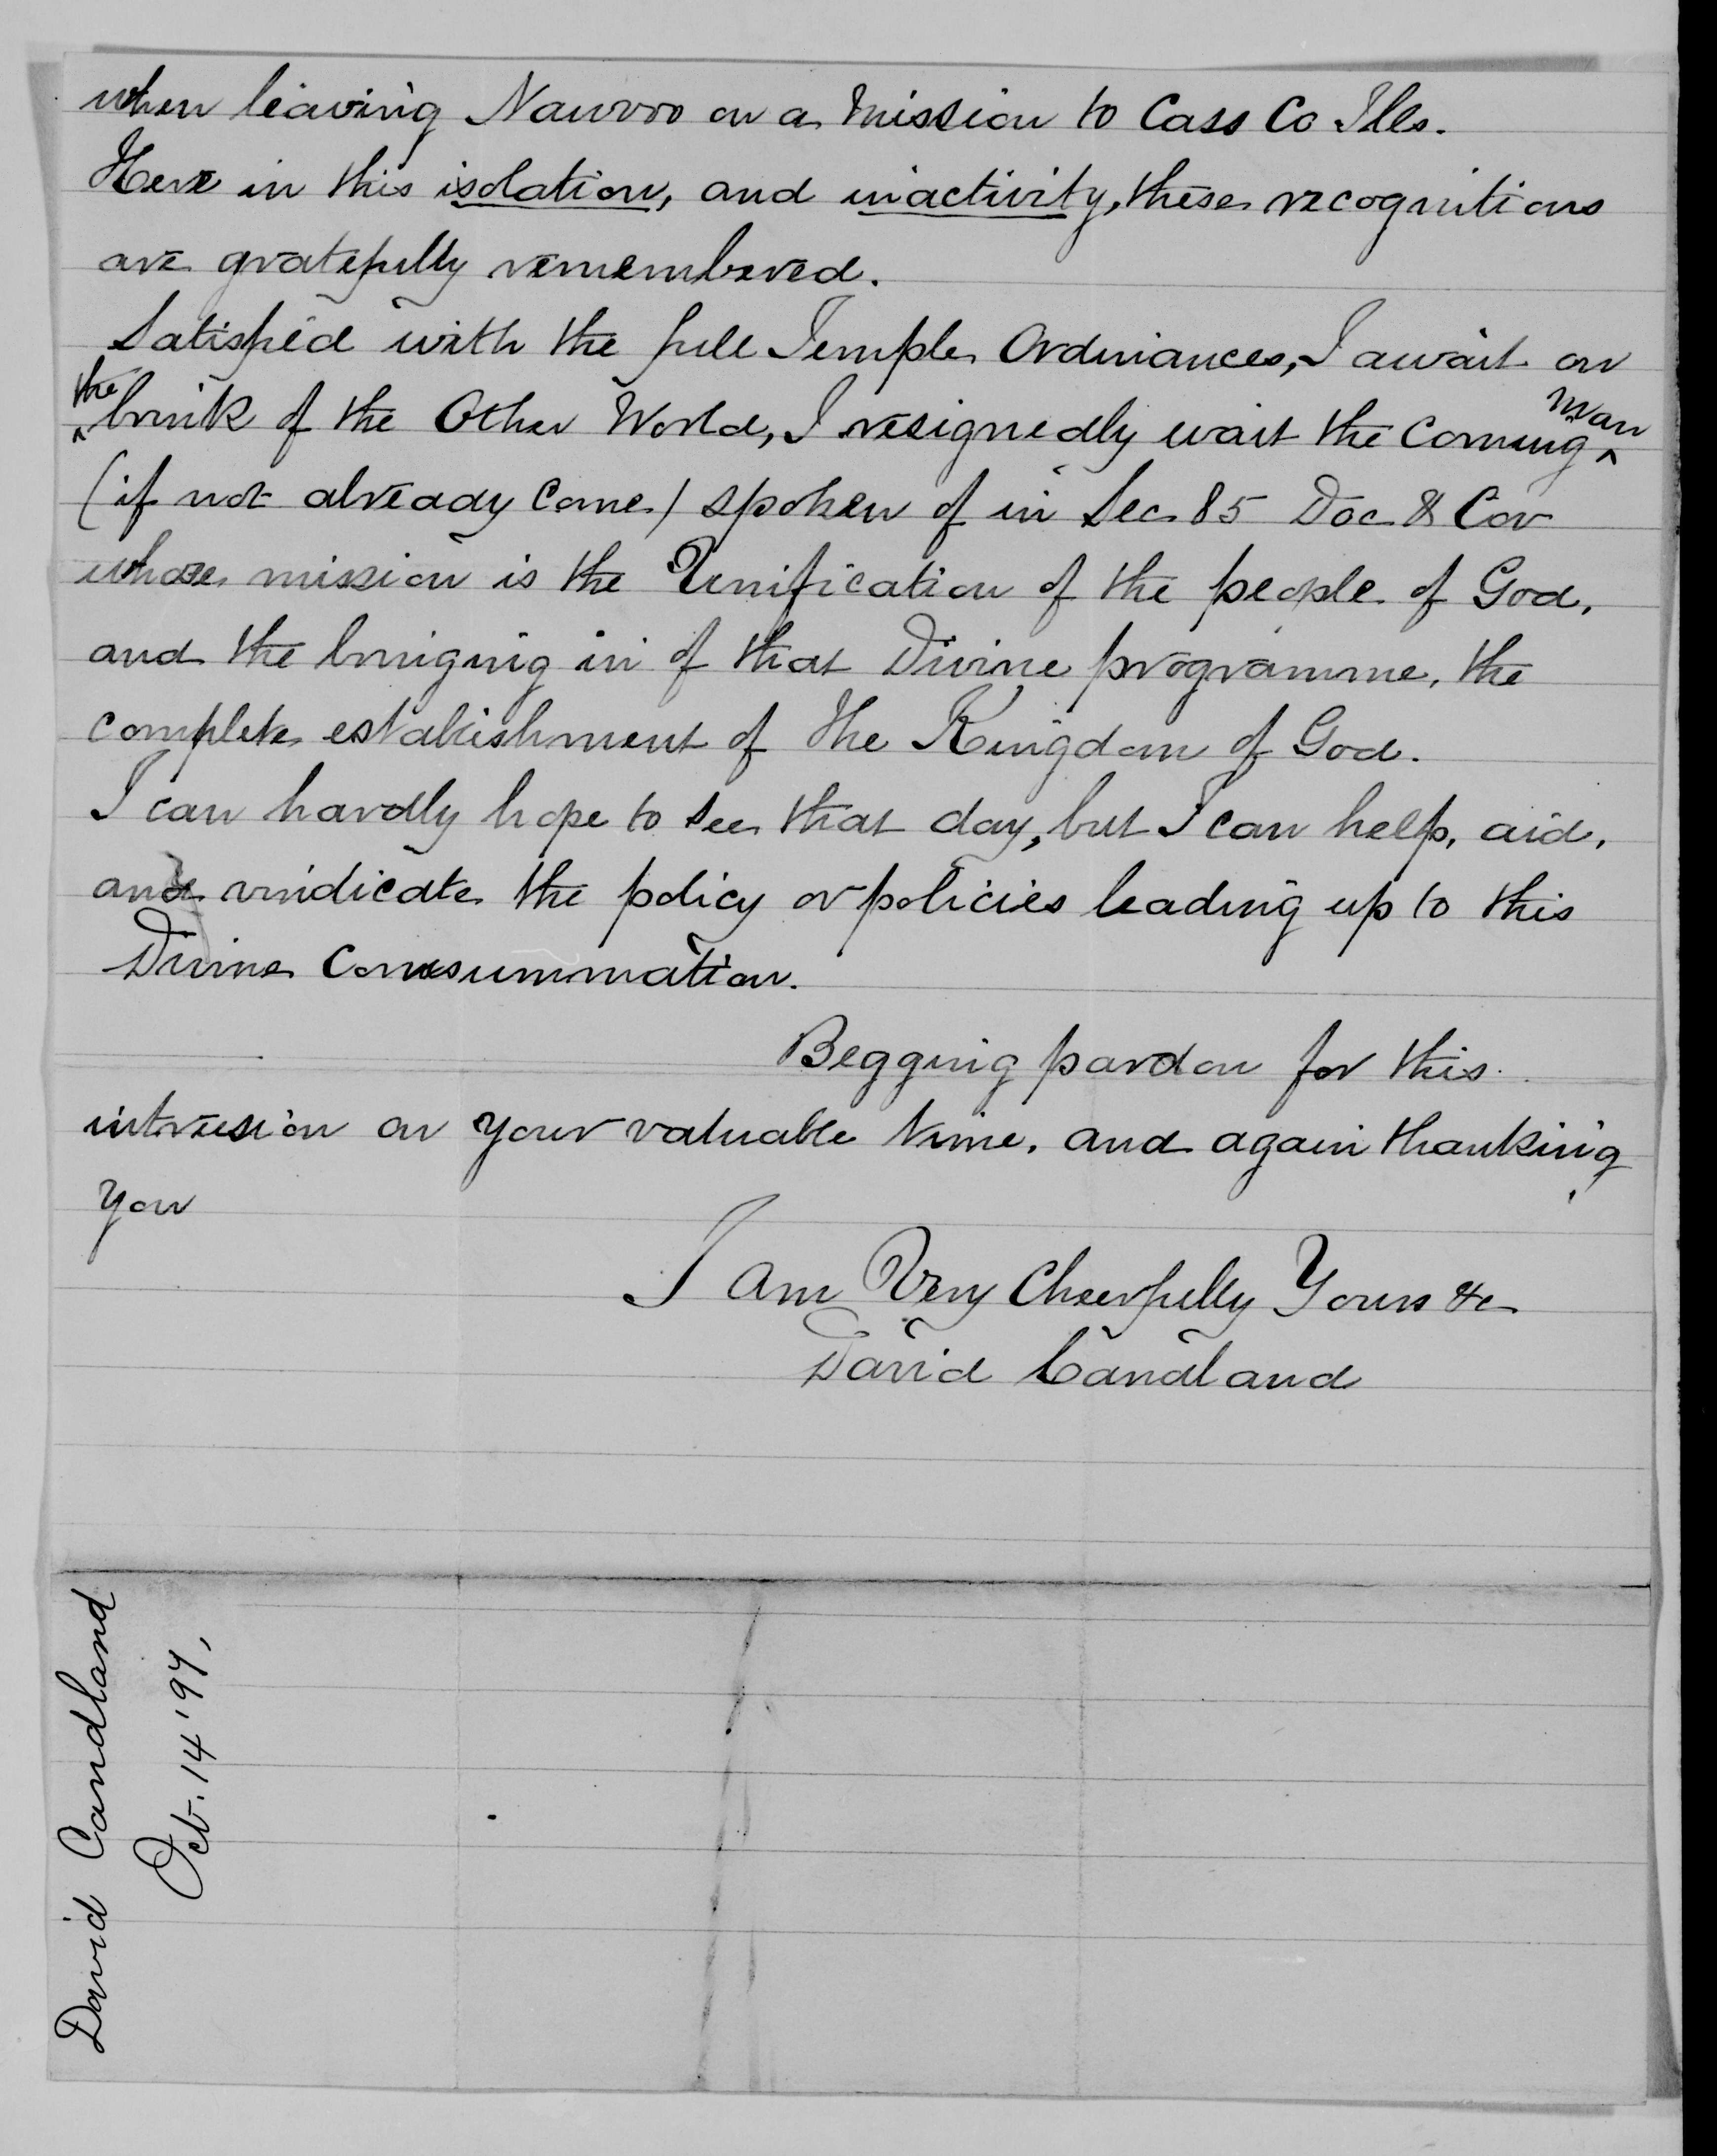 when leaving Nauvoo on a mission to Cass Co Ills.
Here in this isolation, and inactivity, these recognitions
are gratefully remembered.
Satisfied with the full Temple Ordinances, I await on
^the brink of the Other World, I resignedly wait the coming ^man
(if not already come) spoken of in Sec 85 Doc & Cov
whose mission is the Unification of the people of God,
and the bringing in of that Divine programme, the
complete establishment of the Kingdom of God.
I can hardly hope to see that day, but I can help, aid,
and vindicate the policy or policies leading up to this
Divine Consummation.
Begging pardon for this
intrusion on your valuable time, and again thanking
you
I am Very Cheerfully Yours &c
David Candland
David Candland
Oct. 14 '97,